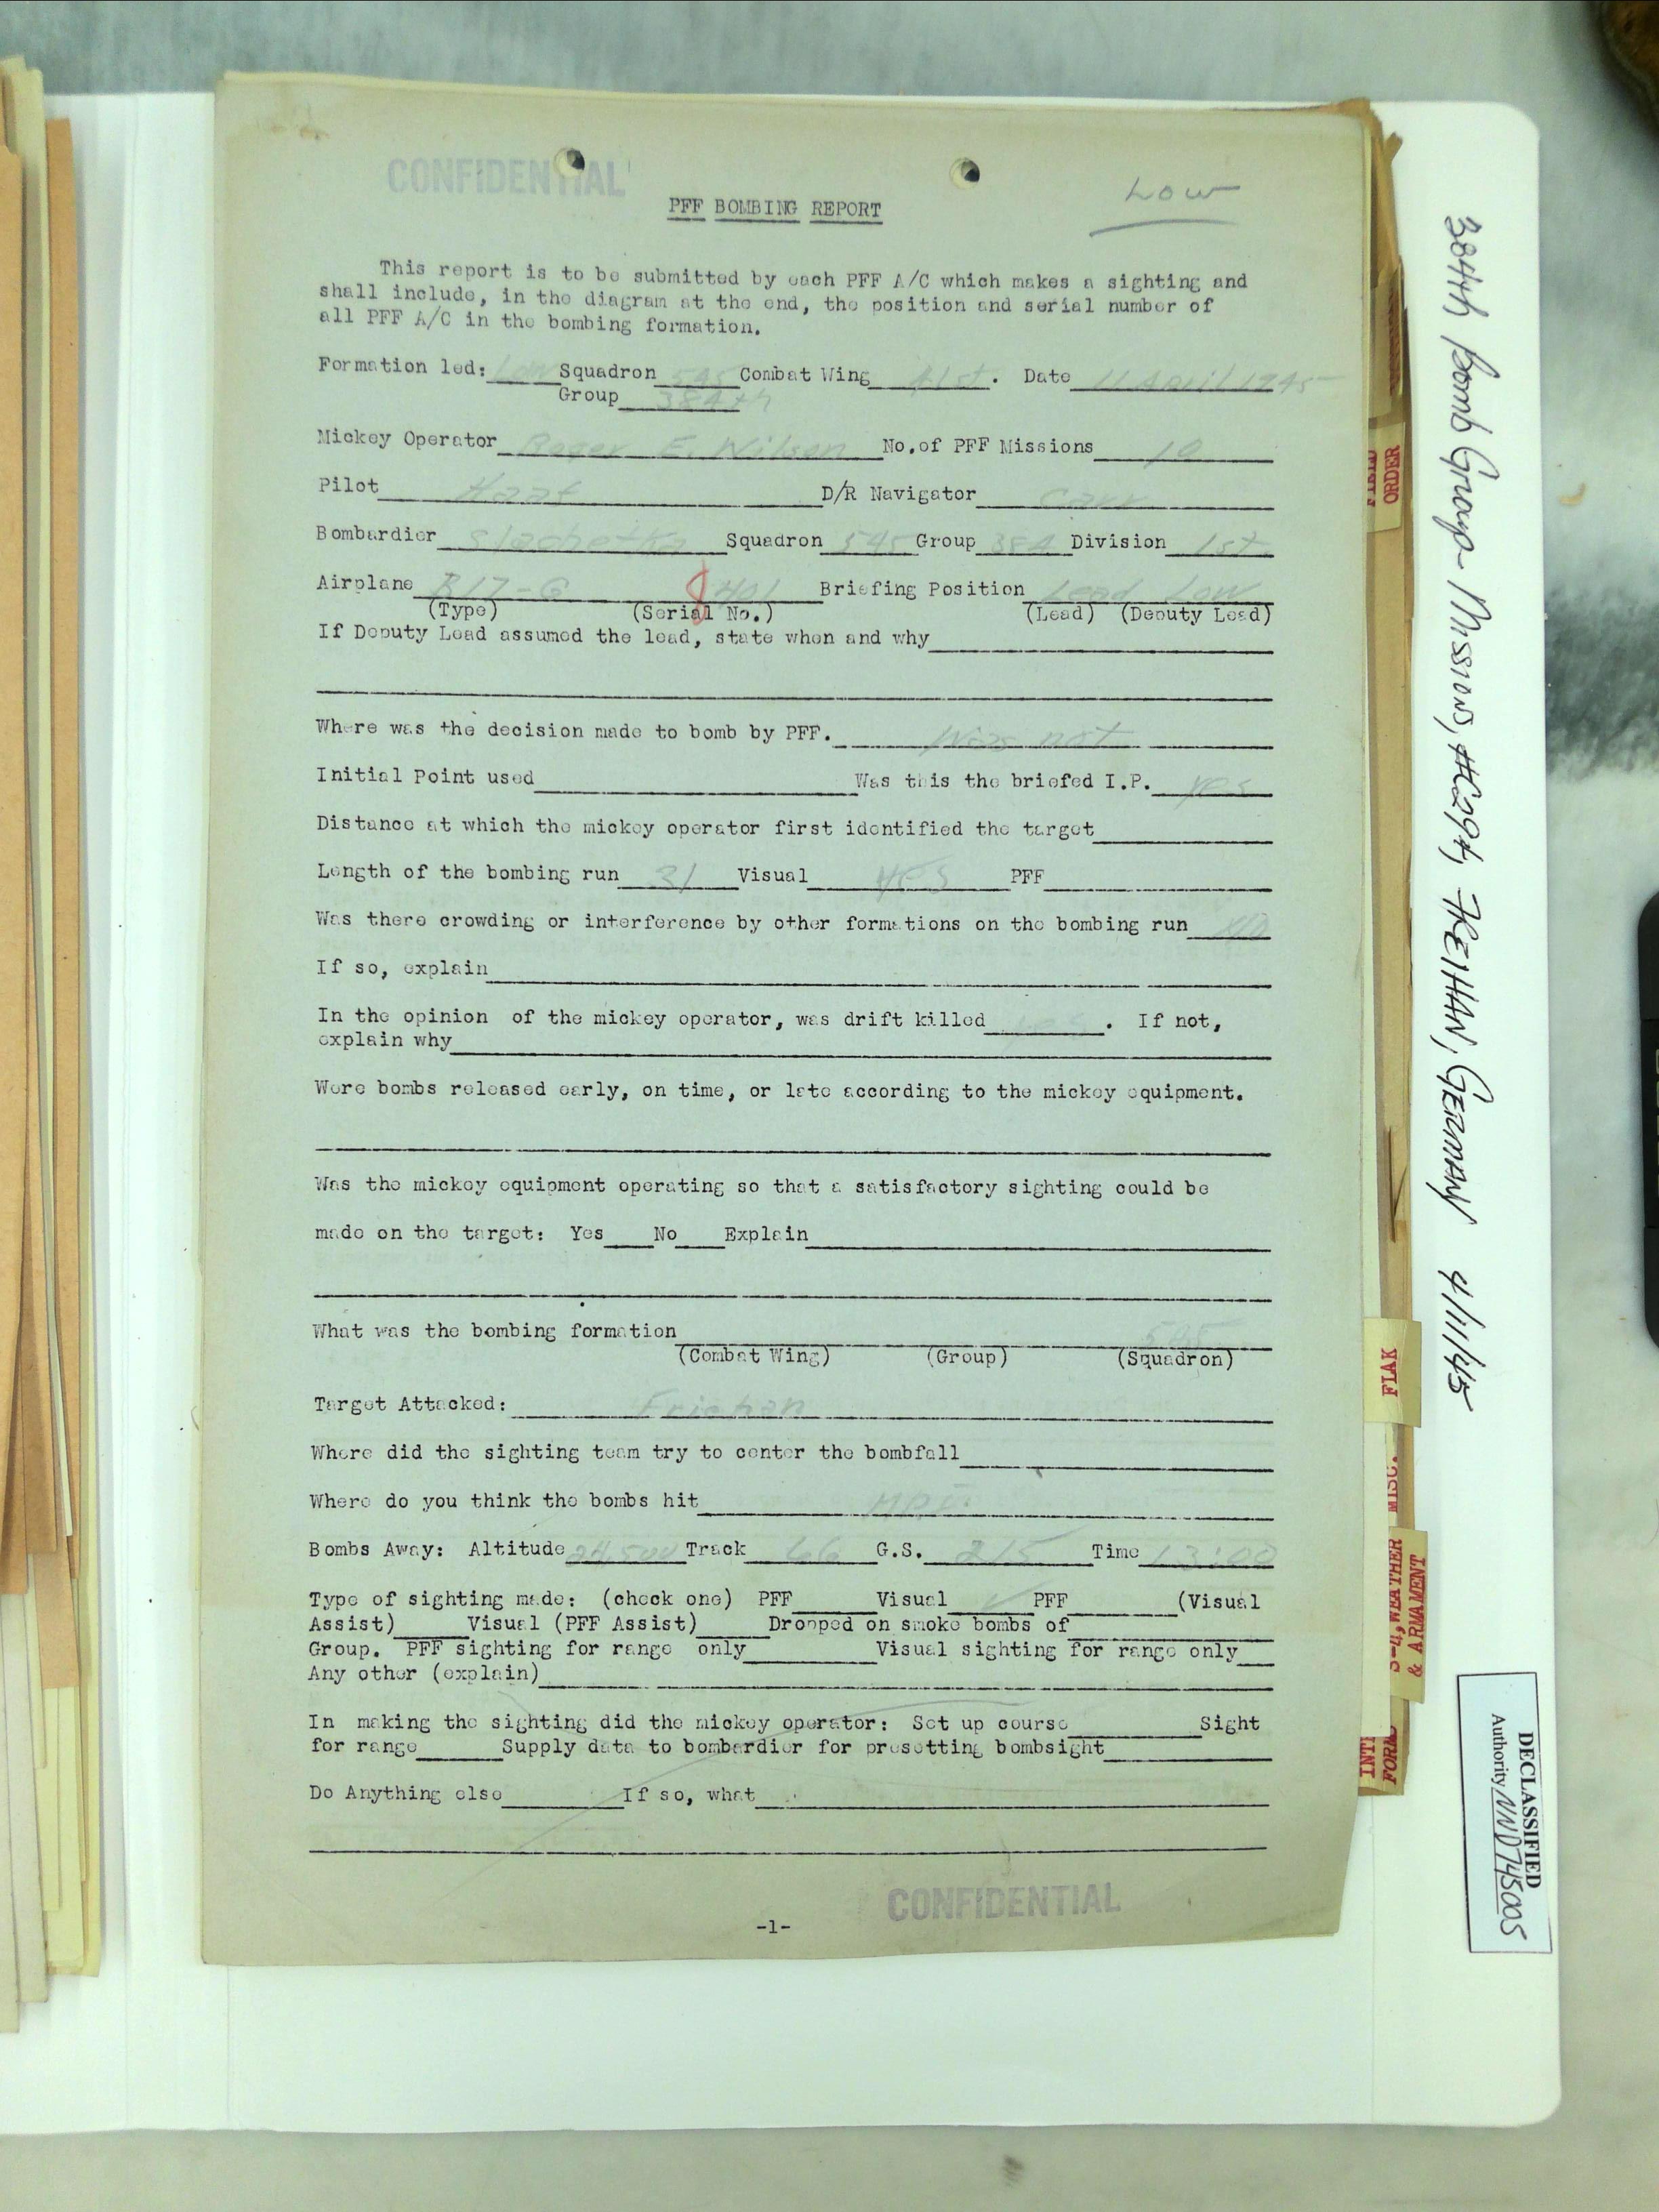 CONFIDENTIAL
PFF BOMBING REPORT
Low
This report is to be submitted by each PFF A/C which makes a sighting and
shall include, in the diagram at the end, the position and serial number of
all PFF A/C in the bombing formation.
Formation led: Low Squadron 545 Combat Wing 41st. Date 11 April 1945
Group 384th
Mickey Operator Roger E. Wilson No. of PFF Missions 10
Pilot Haaf D/R Navigator Carr
Bombardier Squadron 545 Group 384 Division 1st
Airplane B17-G 8401 Briefing Position Lead Low
(Type) (Serial No.) (Lead) (Deputy Lead)
If Deputy Lead assumed the lead, state when and why
Where was the decision made to bomb by PFF. Was not
Initial Point used Was this the briefed I.P. yes
Distance at which the mickey operator first identified the target
Length of the bombing run 31 Visual yes PFF
Was there crowding or interference by other formations on the bombing run No
If so, explain
In the opinion of the mickey operator, was drift killed yes. If not,
explain why
Were bombs released early, on time, or late according to the mickey equipment.
Was the mickey equipment operating so that a satisfactory sighting could be
made on the target: Yes No Explain
What was the bombing formation 545
(Combat Wing) (Group) (Squadron)
Target Attacked: Friehan
Where did the sighting team try to center the bombfall
Where do you think the bombs hit MPI.
Bombs Away: Altitude 24,500 Track 66 G.S. 215 Time 13:00
Type of sighting made: (check one) PFF Visual ✓ PFF (Visual
Assist) Visual (PFF Assist) Dropped on smoke bombs of
Group. PFF sighting for range only Visual sighting for range only
Any other (explain)
In making the sighting did the mickey operator: Set up course Sight
for range Supply data to bombardier for presetting bombsight
Do Anything else If so, what
CONFIDENTIAL
-1-
384th Bomb Group - Mission, #C294, FREIHAN, GERMANY 4/11/45
FIELD
ORDER
FLAK
MISC.
S-4, WEATHER
& ARMAMENT
DECLASSIFIED
Authority NND745005